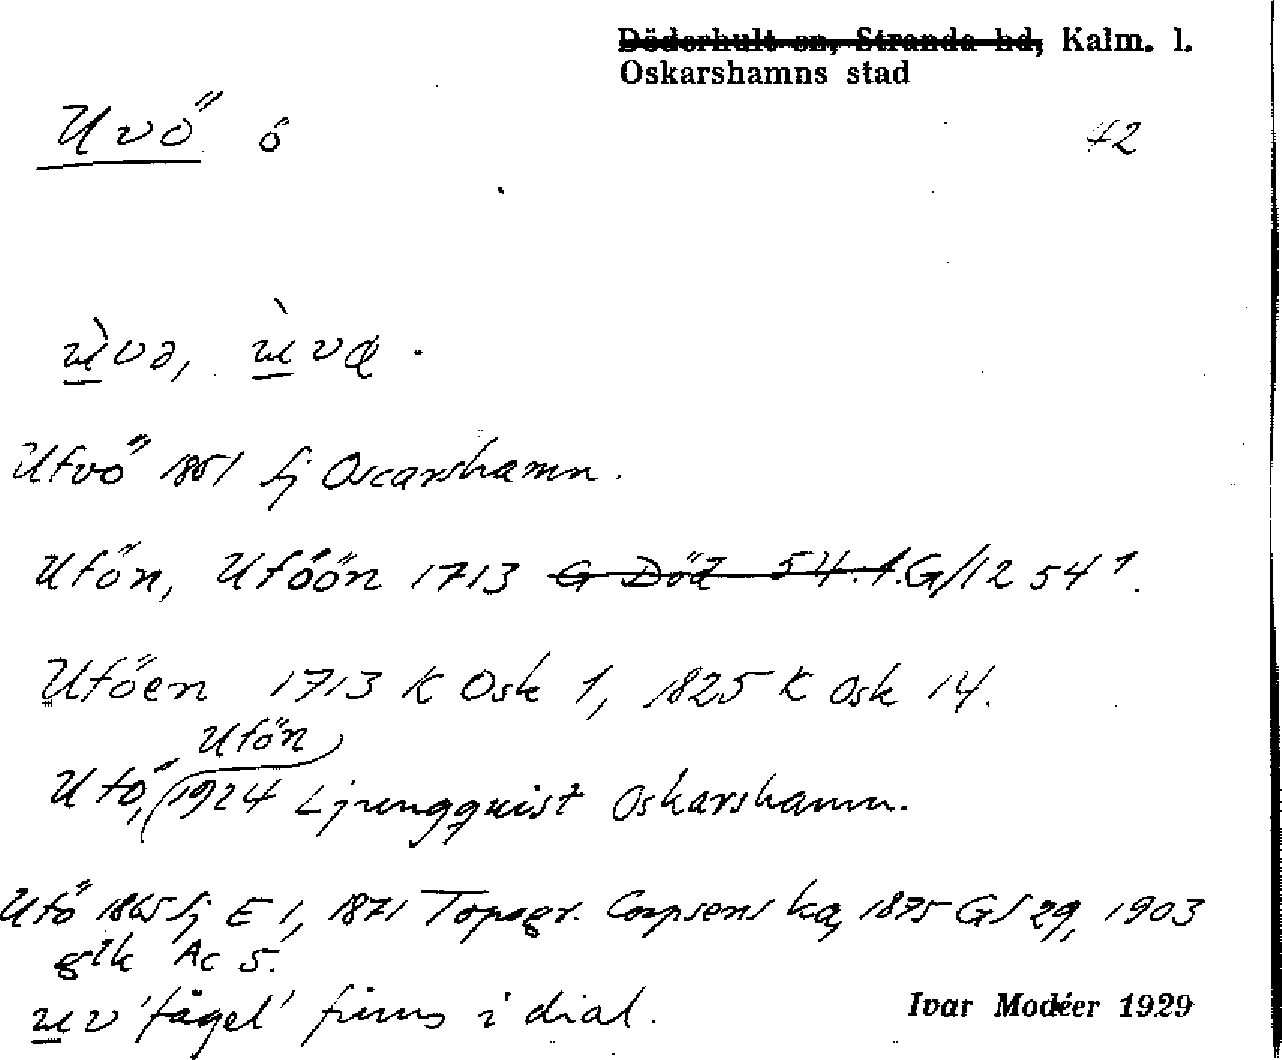 Döderhult sn, Stranda hd, Kalm. l.
Oskarshamns stad
Uvö ö 42
ùvə, ùvą.
Ufvö 1851 sj Oscarshamn.
Ufön, Uföön 1713 G Död 54.1. G/12 54¹.
Uföen 1713 K Osk 1, 1825 K Osk 14.
Ufön
Ufö, (1924 Ljungquist Oskarshamn.
Ufö 1865 sj E 1, 1871 Topogr. Corpsens ka, 1875 GS 29, 1903
glk Ac 5.
uv 'fågel' finns i dial.
Ivar Modéer 1929